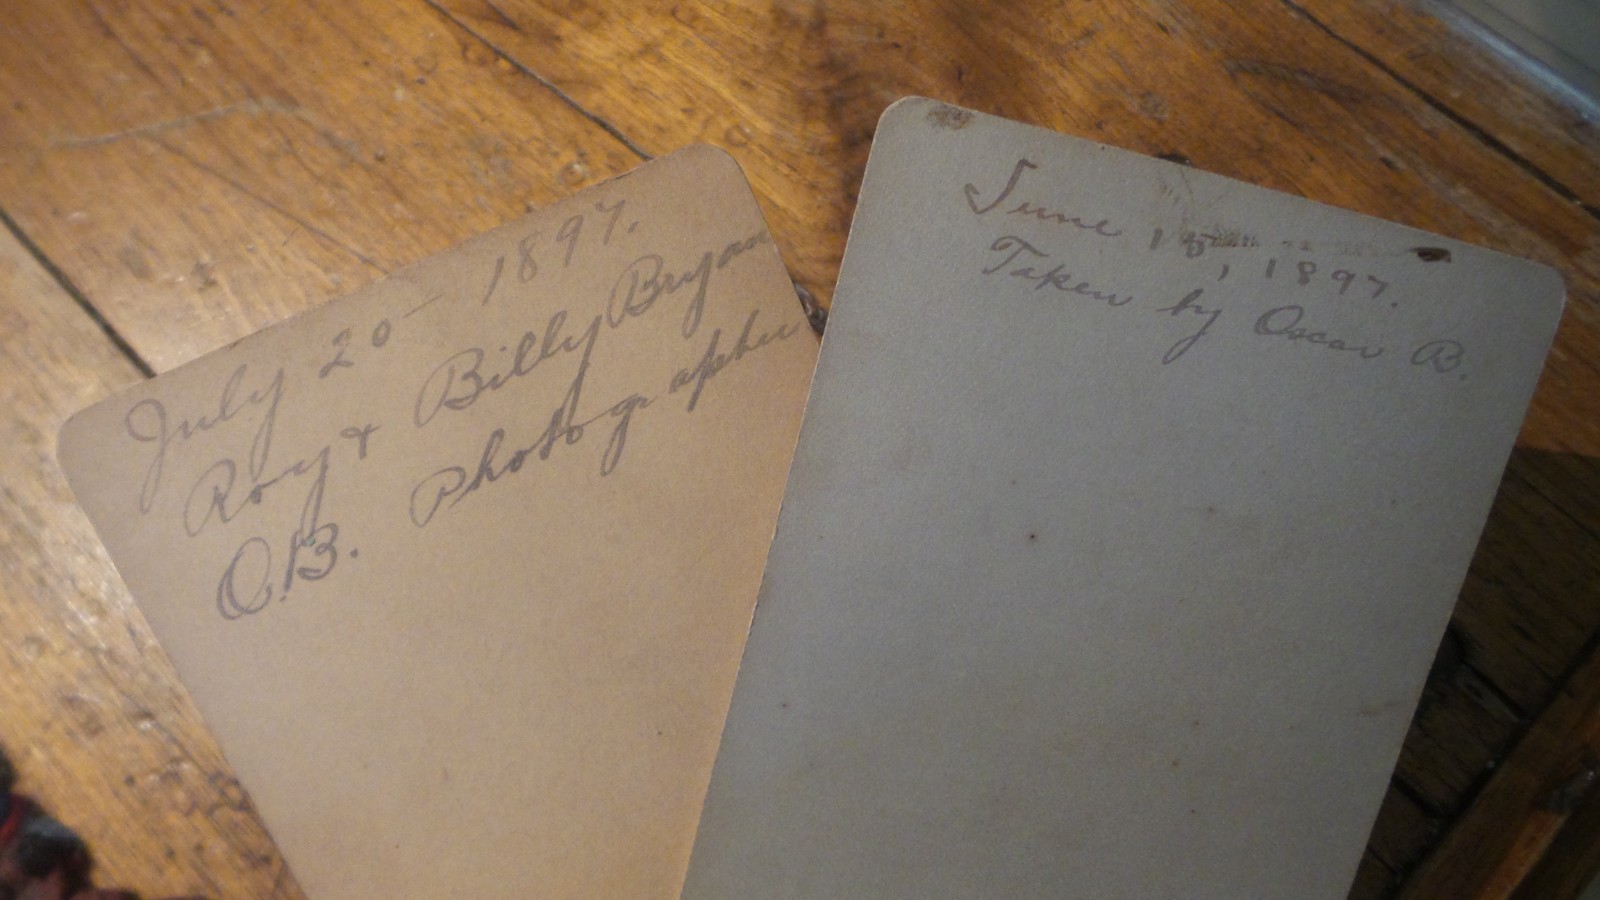 July 20 - 1897.
Roy & Billy Bryan
O.B. Photographer
June 15, 1897.
Taken by Oscar B.